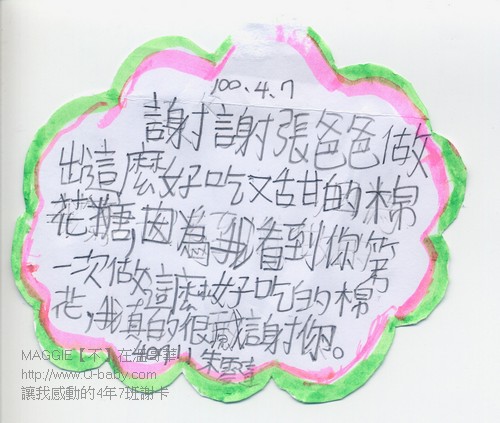 100.4.7
謝謝張爸爸做
出這麼好吃又甜的棉
花糖,因為我看到你第
一次做這麼好吃的棉
花,我真的很感謝你。
朱雲
MAGGIE【不】在溫哥華
http://www.U-baby.com
讓我感動的4年7班謝卡